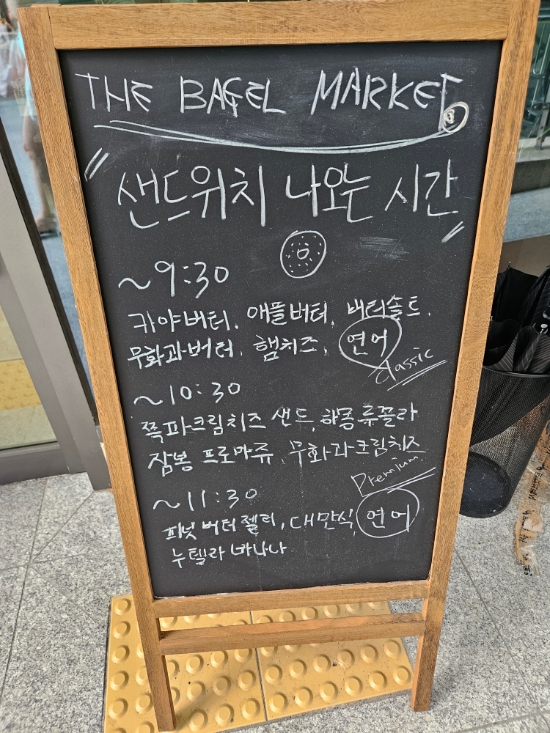 THE BAGEL MARKET
"샌드위치 나오는 시간"
~9:30
카야버터, 애플버터, 버터솔트,
무화과버터, 햄치즈, 연어
classic
~10:30
쪽파크림치즈 샌드, 하몽루꼴라
잠봉 프로마쥬, 무화과크림치즈
Premium
~11:30
피넛버터젤리, 대만식, 연어
누텔라 바나나